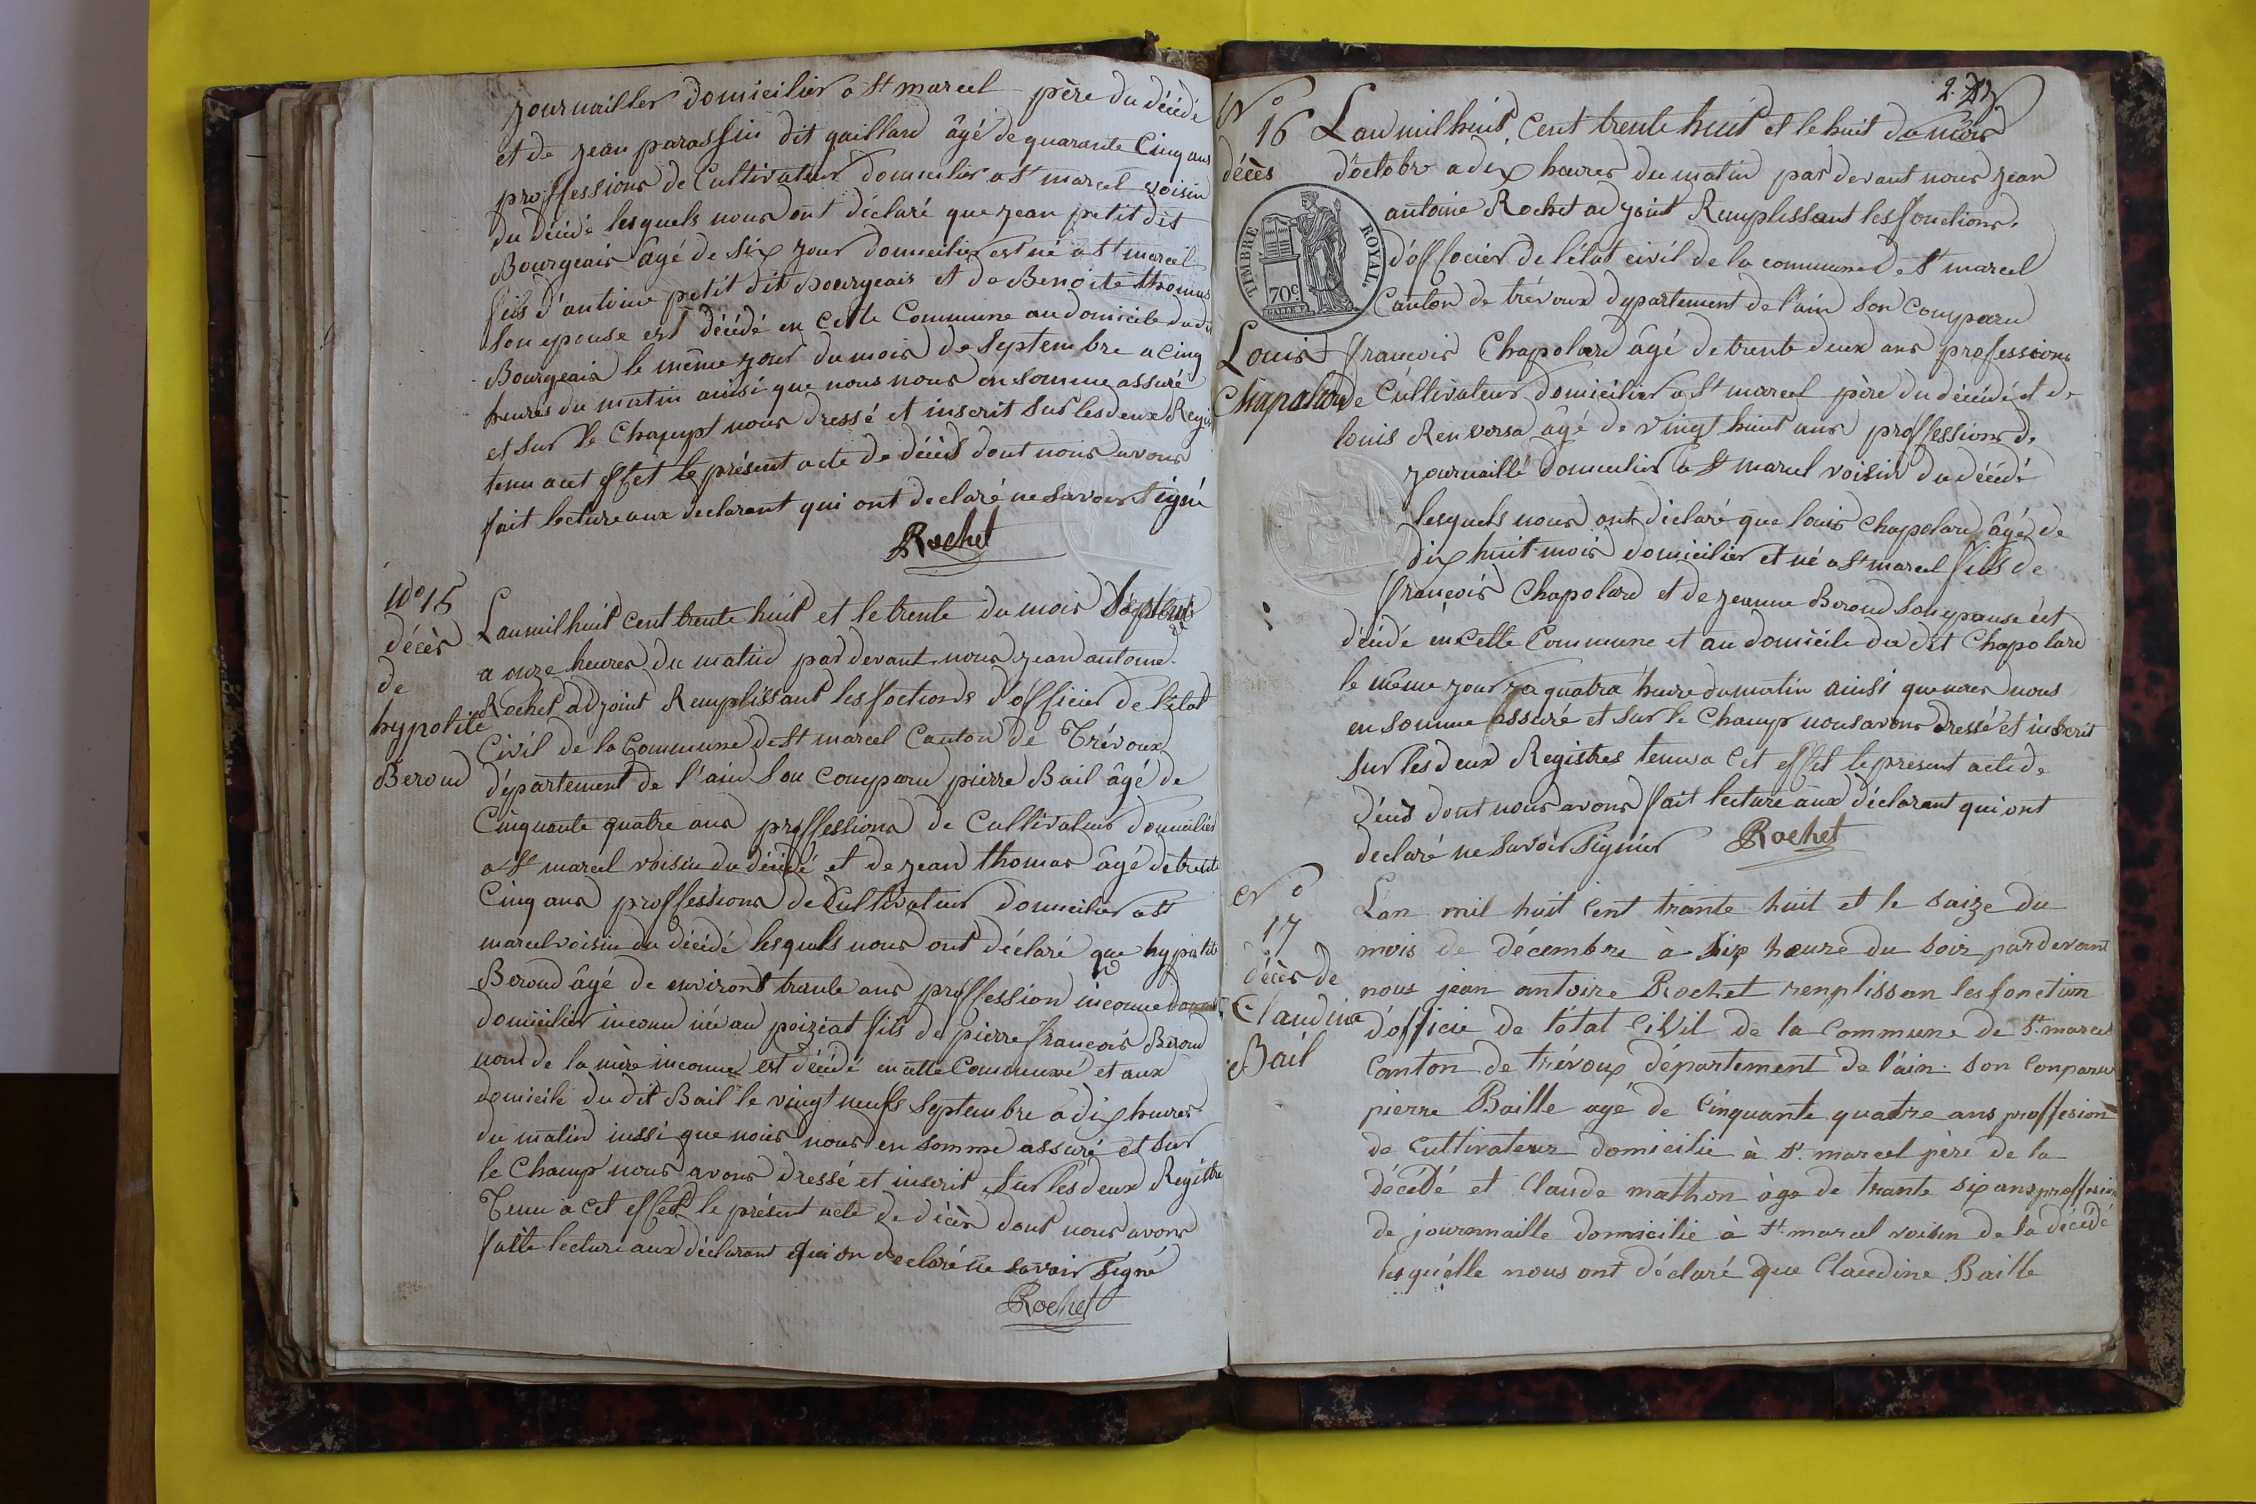 journailler domicilier a St marcel père du décédé
et de jean parassin dit gaillard âgé de quarante Cinq ans
proffessions de Cultivateur domicilier a St marcel voisin
du décédé lesquels nous ont déclaré que jean petit dit
Bourgeais âgé de six jour domicilier est né a St marcel
fils d'antoine petit dit Bourgeais et de Benoite thomas
son epouse est décédé en cette Commune au domicile dudit
Bourgeais le même jour du mois de Septembre a cinq
heures du matin ainsi que nous nous en somme assuré
et sur le Champt nous dressé et inscrit sur les deux Regis
tenu acet effet le présent acte de décès dont nous avons
fait lecture aux declarant qui ont declaré ne savoir signé
Rochet
No 15
décès
de
hypolite
Beroud
Lan mil huit cent trente huit et le trente du mois Septembre
a onze heures du matin par devant nous jean antoine
Rochet adjoint Remplissant les foctions d'officier de l'état
Civil de la Commune de St marcel Canton de Trévoux
département de l'ain Son comparu pierre Bail âgé de
Cinquante quatre ans proffessions de Cultivateur domicilier
a St marcel voisin du décédé et de jean thomas âgé de trente
Cinq ans proffessions de Cultivateur domicilier a St
marcel voisin du décédé lesquels nous ont déclaré que hypolite
Beroud âgé de environt trente ans proffession inconue
domicilier inconu née au poizeat fils de pierre francois Beroud
nom de la mère inconue est décédé en cette Commune et aux
domicile du dit Bail le vingt neufs Septembre a dix heures
du matin iussi que nous nous en somme assuré et sur
le Champ nous avons dressé et inscrit Sur les deux Registre
Tenu a cet effet le présent acte de décès dont nous avons
faite lecture aux déclarant qui on declaré ne savoir Signé
Rochet
2.
No
16
décès
Louis
Chapolard
Lan mil huit Cent trente huit et le huit du mois
d'octobre a dix heures du matin par devant nous jean
antoine Rochet adjoint Remplissant les fonctions
d'offocier de l'état civil de la commune de St marcel
Canton de trévoux dypartement de l'ain Son Comparu
TIMBRE ROYAL
70c.
francois Chapolard âgé de trente deux ans professions
de Cultivateur domicilier a St marcel père du décédé et de
louis Renversa âgé de vingt huit ans proffessions de
journaillé domicilier a St marcel voisin du décédé
lesquels nous ont déclaré que louis Chapolard âgé de
dix huit mois domicilier et né a St marcel fils de
francois Chapolard et de jeanne Beroud son epouse est
décédé en Cette Commune et au domicile du dit Chapolard
le même jour a quatre heure du matin ainsi que nous nous
en somme assuré et sur le Champ nous avons dressé et inscrit
sur les deux Registres tenu a Cet effet le présent acte de
décès dont nous avons fait lecture aux déclarant qui ont
declaré ne savoir signier Rochet
No
17
décès de
Claudine
Bail
Lan mil huit Cent trante huit et le saize du
mois de décembre à six heure du soir par devant
nous jean antoire Rochet renplissan les fonction
d'officie de l'état Civil de la Commune de St marcel
Canton de trévoux département de l'ain son Conparu
pierre Baille agé de Cinquante quatre ans proffesion
de Cultivateur domicilie à St marcel père de la
décédé et Claude mathon âge de trante six ans proffesion
de journnaille domicilie à St marcel voisin de la décédé
lesquélle nous ont déclaré que Claudine Baille